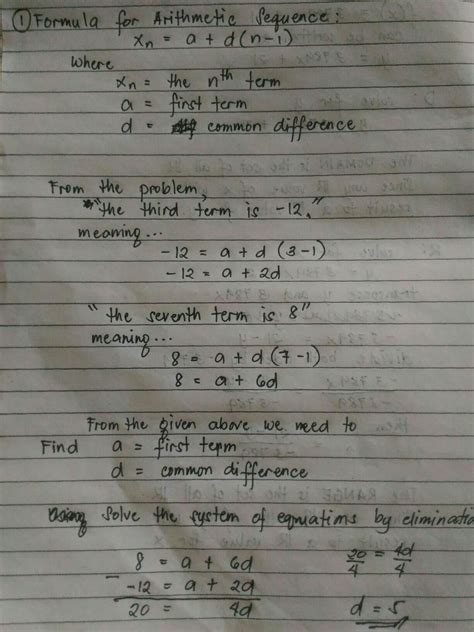 ① Formula for Arithmetic Sequence:
xn = a + d(n-1)
Where
xn = the nth term
a = first term
d = common difference
From the problem,
"the third term is -12."
meaning...
-12 = a + d (3-1)
-12 = a + 2d
"the seventh term is 8"
meaning...
8 = a + d (7-1)
8 = a + 6d
From the given above we need to
Find a = first term
d = common difference
Solve the system of equations by eliminatio
8 = a + 6d
- -12 = a + 2d
20 = 4d
20/4 = 4d/4
d = 5